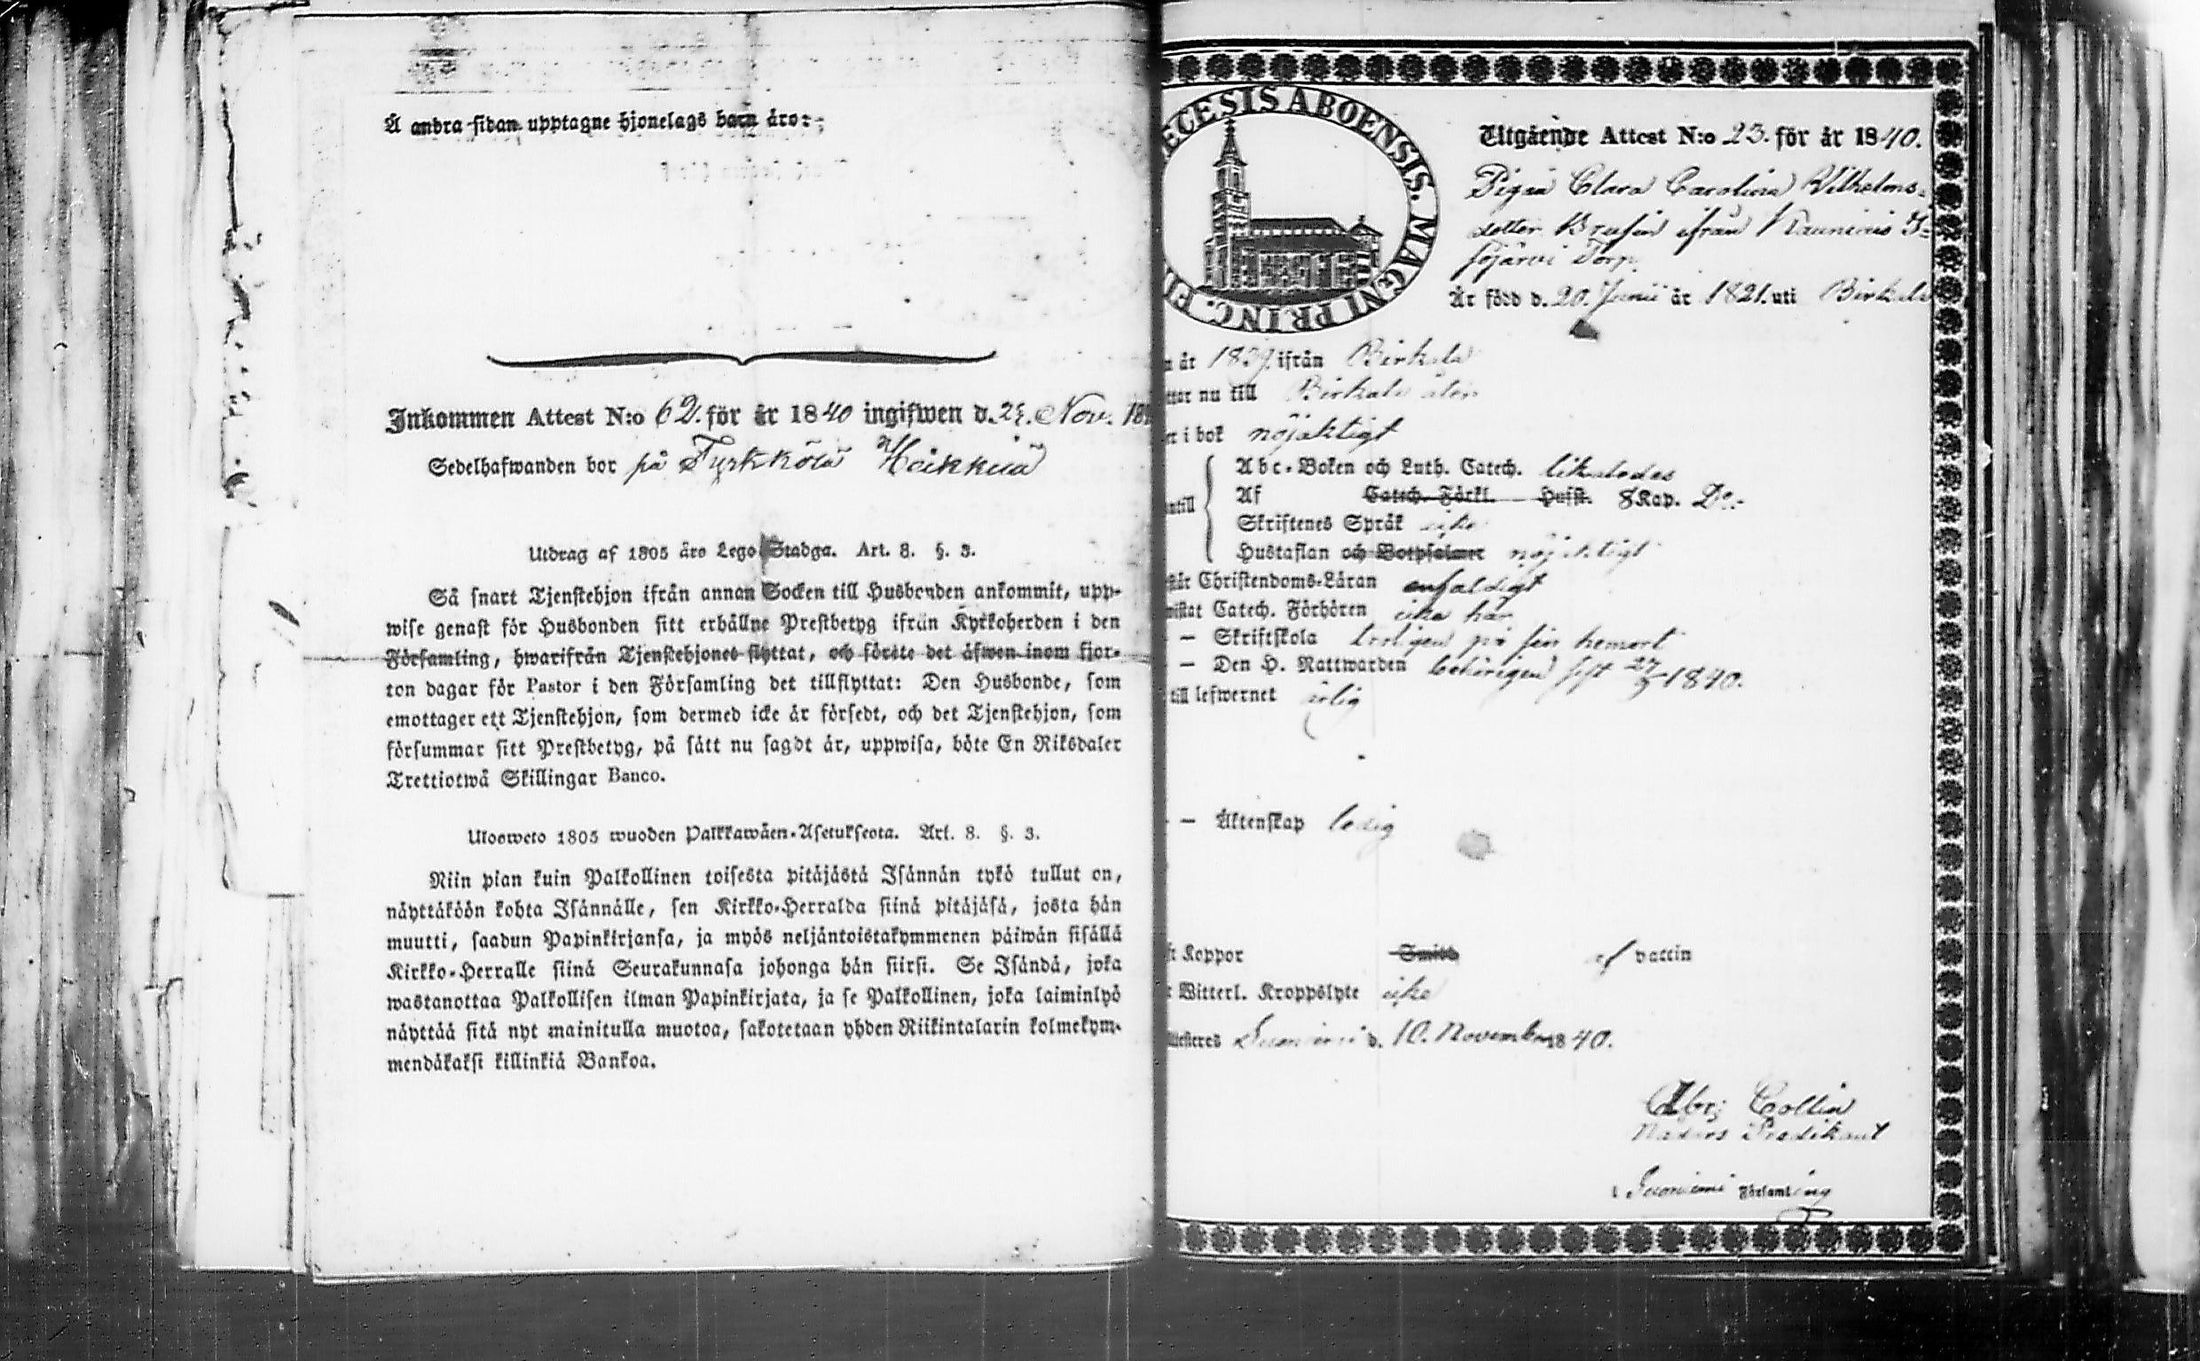 Å andra sidan upptagne hjonelags barn äro:
Inkommen Attest N:o 62. för år 1840 ingifwen d. Nov. 18
Sedelhafwanden bor på Tyrkkölä Heikkilä
Utdrag af 1805 års Lego-Stadga. Art. 8. §. 3.
Så snart Tjenstehjon ifrån annan Socken till Husbonden ankommit, upp-
wise genast för Husbonden sitt erhållne Prestbetyg ifrån Kyrkoherden i den
Församling, hwarifrån Tjenstehjonet flyttat, och förete det äfwen inom fjor-
ton dagar för Pastor i den Församling det tillflyttat: Den Husbonde, som
emottager ett Tjenstehjon, som dermed icke är försedt, och det Tjenstehjon, som
försummar sitt Prestbetyg, på sätt nu sagdt är, uppwisa, böte En Riksdaler
Trettiotwå Skillingar Banco.
Ulosweto 1805 wuoden Palkkawäen-Asetuksesta. Art. 8. §. 3.
Niin pian kuin Palkollinen toisesta pitäjästä Isännän tykö tullut on,
näyttäköön kohta Isännälle, sen Kirkko-Herralda siinä pitäjäsä, josta hän
muutti, saadun Papinkirjansa, ja myös neljäntoistakymmenen päiwän sisällä
Kirkko-Herralle siinä Seurakunnasa johonga hän siirsi. Se Isändä, joka
wastanottaa Palkollisen ilman Papinkirjata, ja se Palkollinen, joka laiminlyö
näyttää sitä nyt mainitulla muotoa, sakotetaan yhden Riikintalarin kolmekym-
mendäkaksi killinkiä Bankoa.
ECESIS ABOENSIS. MAGNI PRINC. FI
Utgående Attest N:o 23. för år 1840.
Pigan Clara Carolina Vilhelms-
dotter Brusin ifrån Kauniais I-
sojärvi Torp.
År född d. 20. Junii år 1821. uti Birkala
år 1839. ifrån Birkala
nu till Birkala åter
i bok nöjaktigt
Abc-Boken och Luth. Catech. likaledes
Af Catech. Förkl. Hufst. 8 Kap. Do.-
Skriftenes Språk icke
Hustaflan och Botpsalmer nöjaktigt
Christendoms-Läran enfaldigt
Catech. Förhören icke här
— Skriftskola troligen på sin hemort
— Den H. Nattwarden behörigen sist 27/9 1840.
till lefwernet ärlig
— Äktenskap ledig
Koppor Smitt af vaccin
Witterl. Kroppslyte icke
Suoniemi d. 10. November 1840.
Abr: Collin
Nådårs Predikant
i Suoniemi Församling